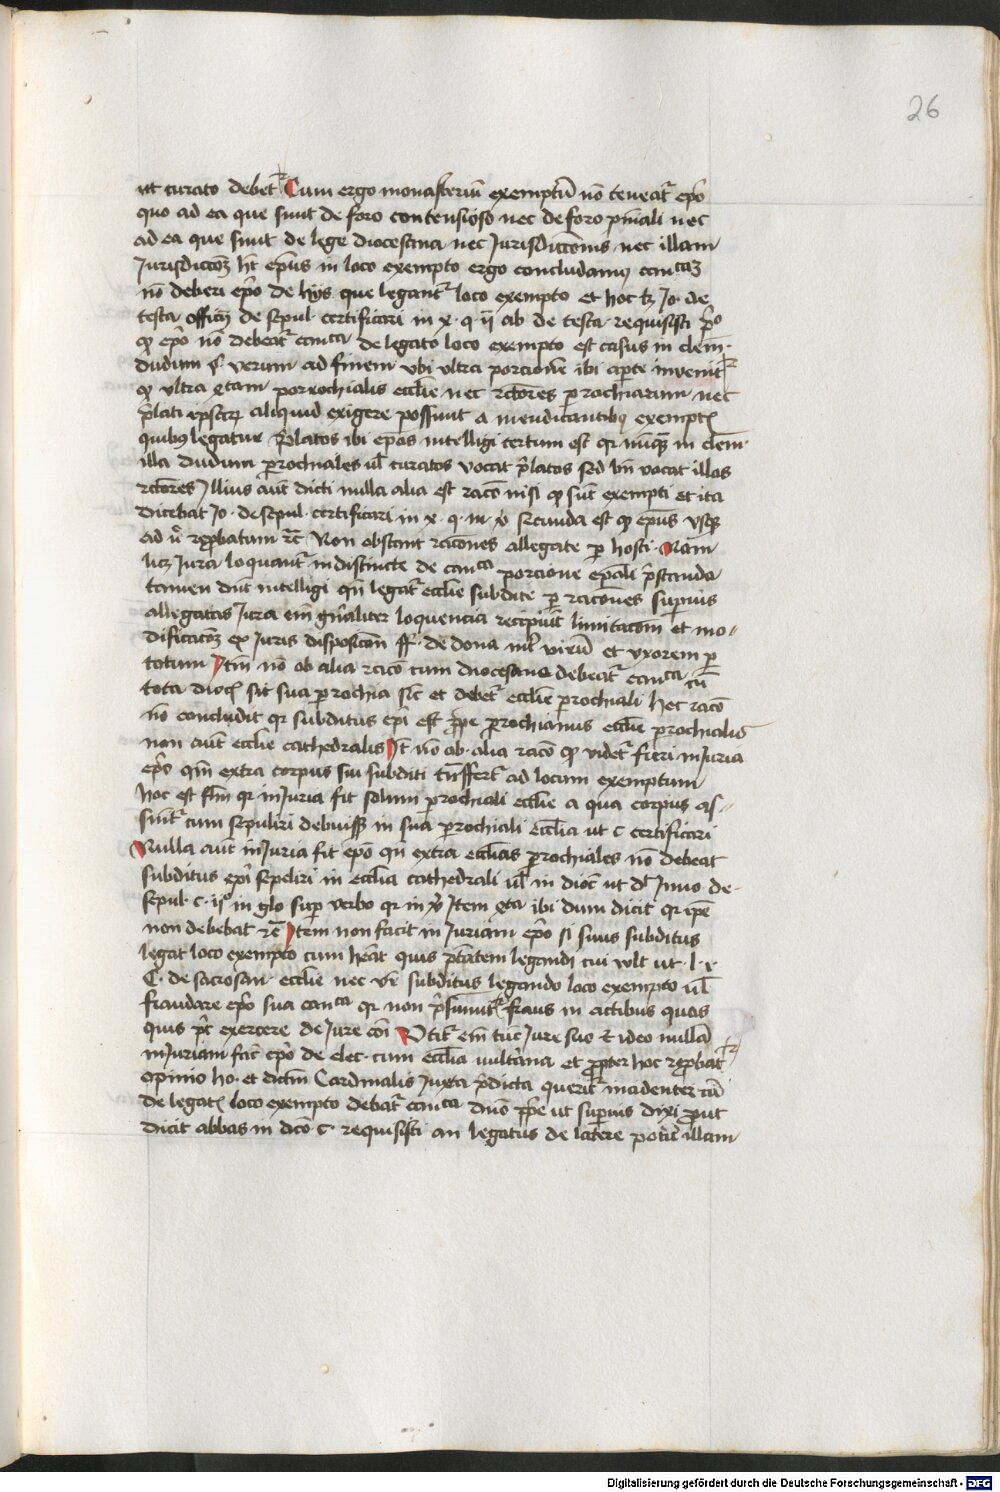 26
ut curato debet᷑ Cum ergo monasteriū exemptū nō teneat᷑ ep̄o
quo ad ea que sunt de foro contensioso nec de foro pn̄iali nec
ad ea que sunt de lege diocesana nec Jurisdicc̄onis nec illam
Jurisdicc̄oꝫ ht̄ ep̄us in loco exempto ergo concludamꝰ canᶜᵃꝫ
nō deberi ep̄o de hijs que legant᷑ loco exempto et hoc tꝫ Jo· de
testa officiꝫ de sepul· certificari in x· q· ij ab de testa· requisisti
ꝙ ep̄o nō debeat᷑ canᶜᵃ de legato loco exempto est casus in clem·
dudum §· verum ad finem vbi vltra porcionē ibi aperte invenit᷑
ꝙ vltra qͣtam porrochialis ecclīe nec rc̄tores parrochiarum nec
p̄lati ipsorꝫ aliquid exigere possunt a mendicantibꝰ exempt
quibꝰ legatur P̄latos ibi ep̄os intelligi certum est qr nuqͣꝫ in clem·
illa dudum parochiales ul̄ curatos vocat p̄latos sed bn̄ vocat illos
rc̄tores Illius aut̄ dicti nulla alia est racō nisi ꝙ sūt exempti et ita
dicebat Jo· de sepul· certificari in x· q· in ꝟ secunda est ꝙ ep̄us vsqꝫ
ad ꝟ reprobatum rc̄ Non obstant racōnes allegate per hosti· Nam
licꝫ Jura loquant᷑ indistincte de canᶜᵃ porcione ep̄ali p̄standa
tamen dn̄t intelligi qn̄ legat᷑ ecclīe subdite per racōnes superius
allegatas Jura em̄ gn̄aliter loquencia recipiūt limitacōm et mo-
dificacōꝫ ex Juris disposicōn ff· de dona int᷑ virū et vxorem per
totum Itm̄ nō ob alia racō cum diocesano debeat᷑ canᶜᵃ cū
tota dioc̄ sit sua parochia sic̄ et debet᷑ ecclīe parochiali hec racō
nō concludit qr subditus ep̄i est prop̄e parochianus ecclīe parochialis
non aut̄ ecclīe cathedralis It̄ nō ob· alia racō ꝙ videt᷑ fieri iniuria
ep̄o qn̄ extra corpus sui subditi tn̄sfert᷑ ad locum exemptum
hoc est fl̄m qr iniuria fit solum parochiali ecclīe a qua corpus as-
sūit᷑ cum sepuliri debuissꝫ in sua parochiali ecclīa ut c· certificari
Nulla aut̄ iniuria fit ep̄o qn̄ extra ecclīas parochiales nō debeat
subditus ep̄i sepeliri in ecclīa cathedrali ul̄ in dioc̄ ut dt᷑ Inno de-
sepul· c· in glo super verbo qr in ꝟ Item qͣta ibi dum dicit qr ip̄e
non debebat rc̄ Itēm non facit in Juriam ep̄o si suus subditus
legat loco exempto cum hēat quis p̄tātem legandi cui wlt ut· l· 
C· de sacrosan· ecclīe nec vr̄ subditus legando loco exempto ul̄
fraudare ep̄o sua canᶜᵃ qr non p̄sumit᷑ fraus in actibus quos
quis pt̄ exercere de Jure cōi Vtit᷑ em̄ tūc Jure suo et ideo nullā
iniuriam fac̄ ep̄o de elec· cum ecclīa vultr̄ana et propter hoc reprobat᷑
opinio ho· et dictm̄ Cardinalis Juxta p̄dicta querit᷑ incidenter cū
de legat loco exempto debeat᷑ canᶜᵃ dn̄o pp̄e ut superius dixi prout
dicit abbas in dc̄o c· requisisti an legatus de latere potit᷑ illam
Digitalisierung gefördert durch die Deutsche Forschungsgemeinschaft - DFG